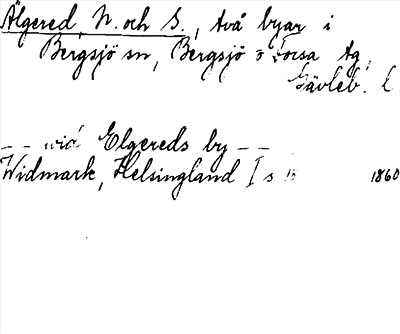 Älgered, N. och S., två byar i
Bergsjö sn, Bergsjö o Forsa tg,
Gävleb. l.
– – vid Elgereds by – –
Widmark, Helsingland I s 1860